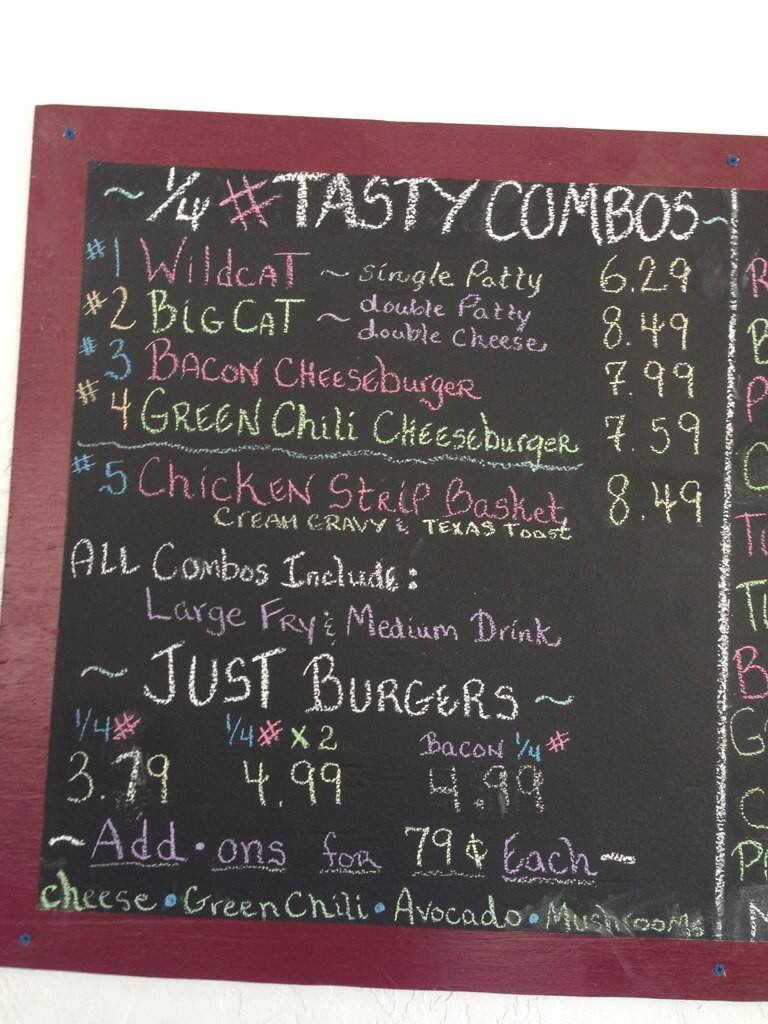 ~ 1/4 # TASTY COMBOS ~
#1 WildCAT ~ single Patty 6.29
#2 BiG CAT ~ double Patty double Cheese 8.49
#3 BACON CHEESEburgER 7.99
#4 GREEN Chili CHEESEburgER 7.59
#5 ChicKEN STRiP BasKET 8.49
CREAM GRAVY & TEXAS Toast
ALL Combos Include:
Large FRY & Medium Drink
~ JUST BURGERS ~
1/4# 1/4# x 2 BACON 1/4#
3.79 4.99 4.99
~ Add • ons for 79¢ Each ~
cheese • Green Chili • Avocado • Mushrooms